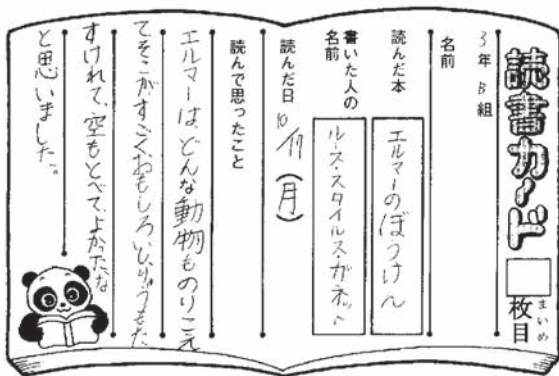 読書カード
枚目
まいめ
3年 B組
名前
読んだ本
エルマーのぼうけん
書いた人の
名前
ルース・スタイルス・ガネット
読んだ日 10/17(月)
読んで思ったこと
エルマーは、どんな動物ものりこえ
てそこがすごくおもしろい、りゅうもた
すけれて、空もとべて、よかったな
と思いました。